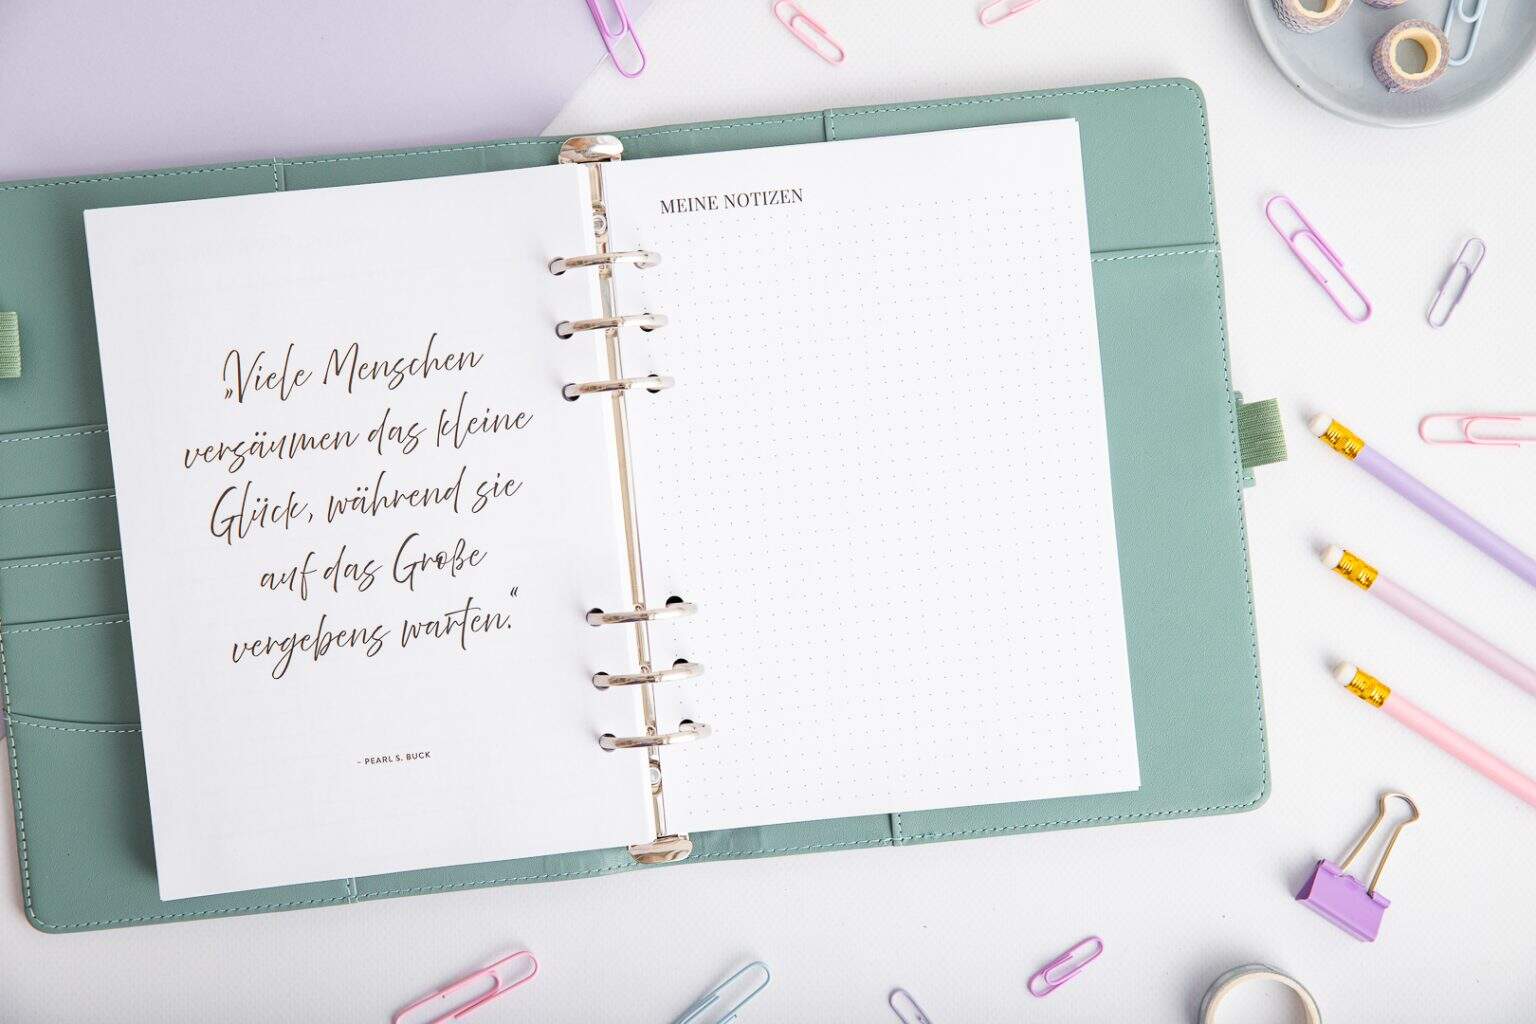 „Viele Menschen
versäumen das kleine
Glück, während sie
auf das Große
vergebens warten.“
- PEARL S. BUCK
MEINE NOTIZEN